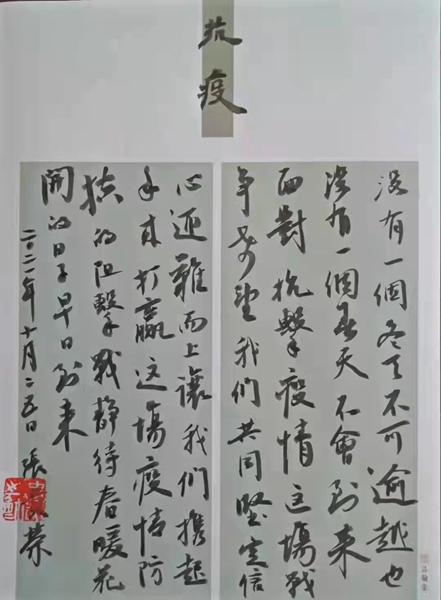 抗疫
没有一個冬天不可逾越也
沒有一個春天不會到来
面對抗擊疫情这場戰
争希望我们共同堅定信
心迎難而上讓我们携起
手来打赢这場疫情防
控的阻擊戰静待春暖花
開的日子早日到来
二〇二一年十月二五日 张荣